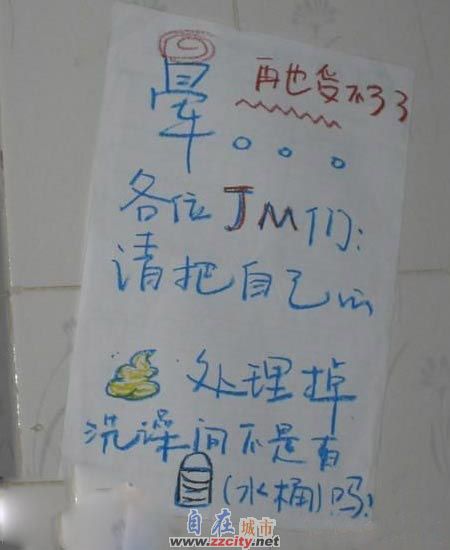 晕。。。
再也受不了了
各位JM们:
请把自己的
处理掉
洗澡间不是有
(水桶)吗!
自在城市
www.zzcity.net